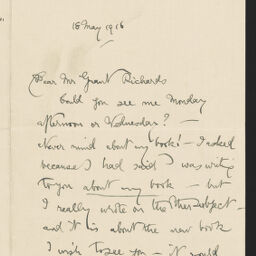 18 May 1916
Dear Mr Grant Richards
Could you see me Monday
afternoon or Wednesday? —
Never mind about my book! — I asked
because I had said I was writing
to you about my book — but
I really wrote on the other subject —
and it is about the new book
I wish to see you — it would